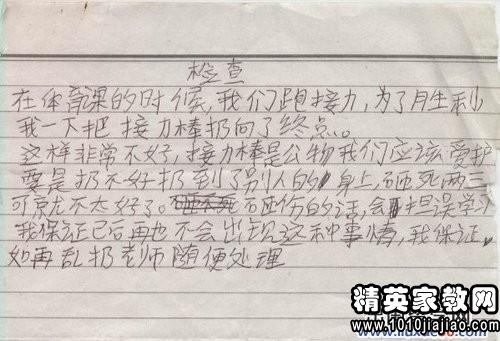 检查
在体育课的时候,我们跑接力,为了月生利
我一下把接力棒扔向了终点。
这样非常不好,接力棒是公物我们应该爱护
要是扔不好扔到了别人的身上,砸死两三
可就不太好了。砸伤的话,会担误学习
我保证已后再也不会出现这种事情,我保证.
如再乱扔老师随便处理
精英家教网
www.1010jiajiao.com